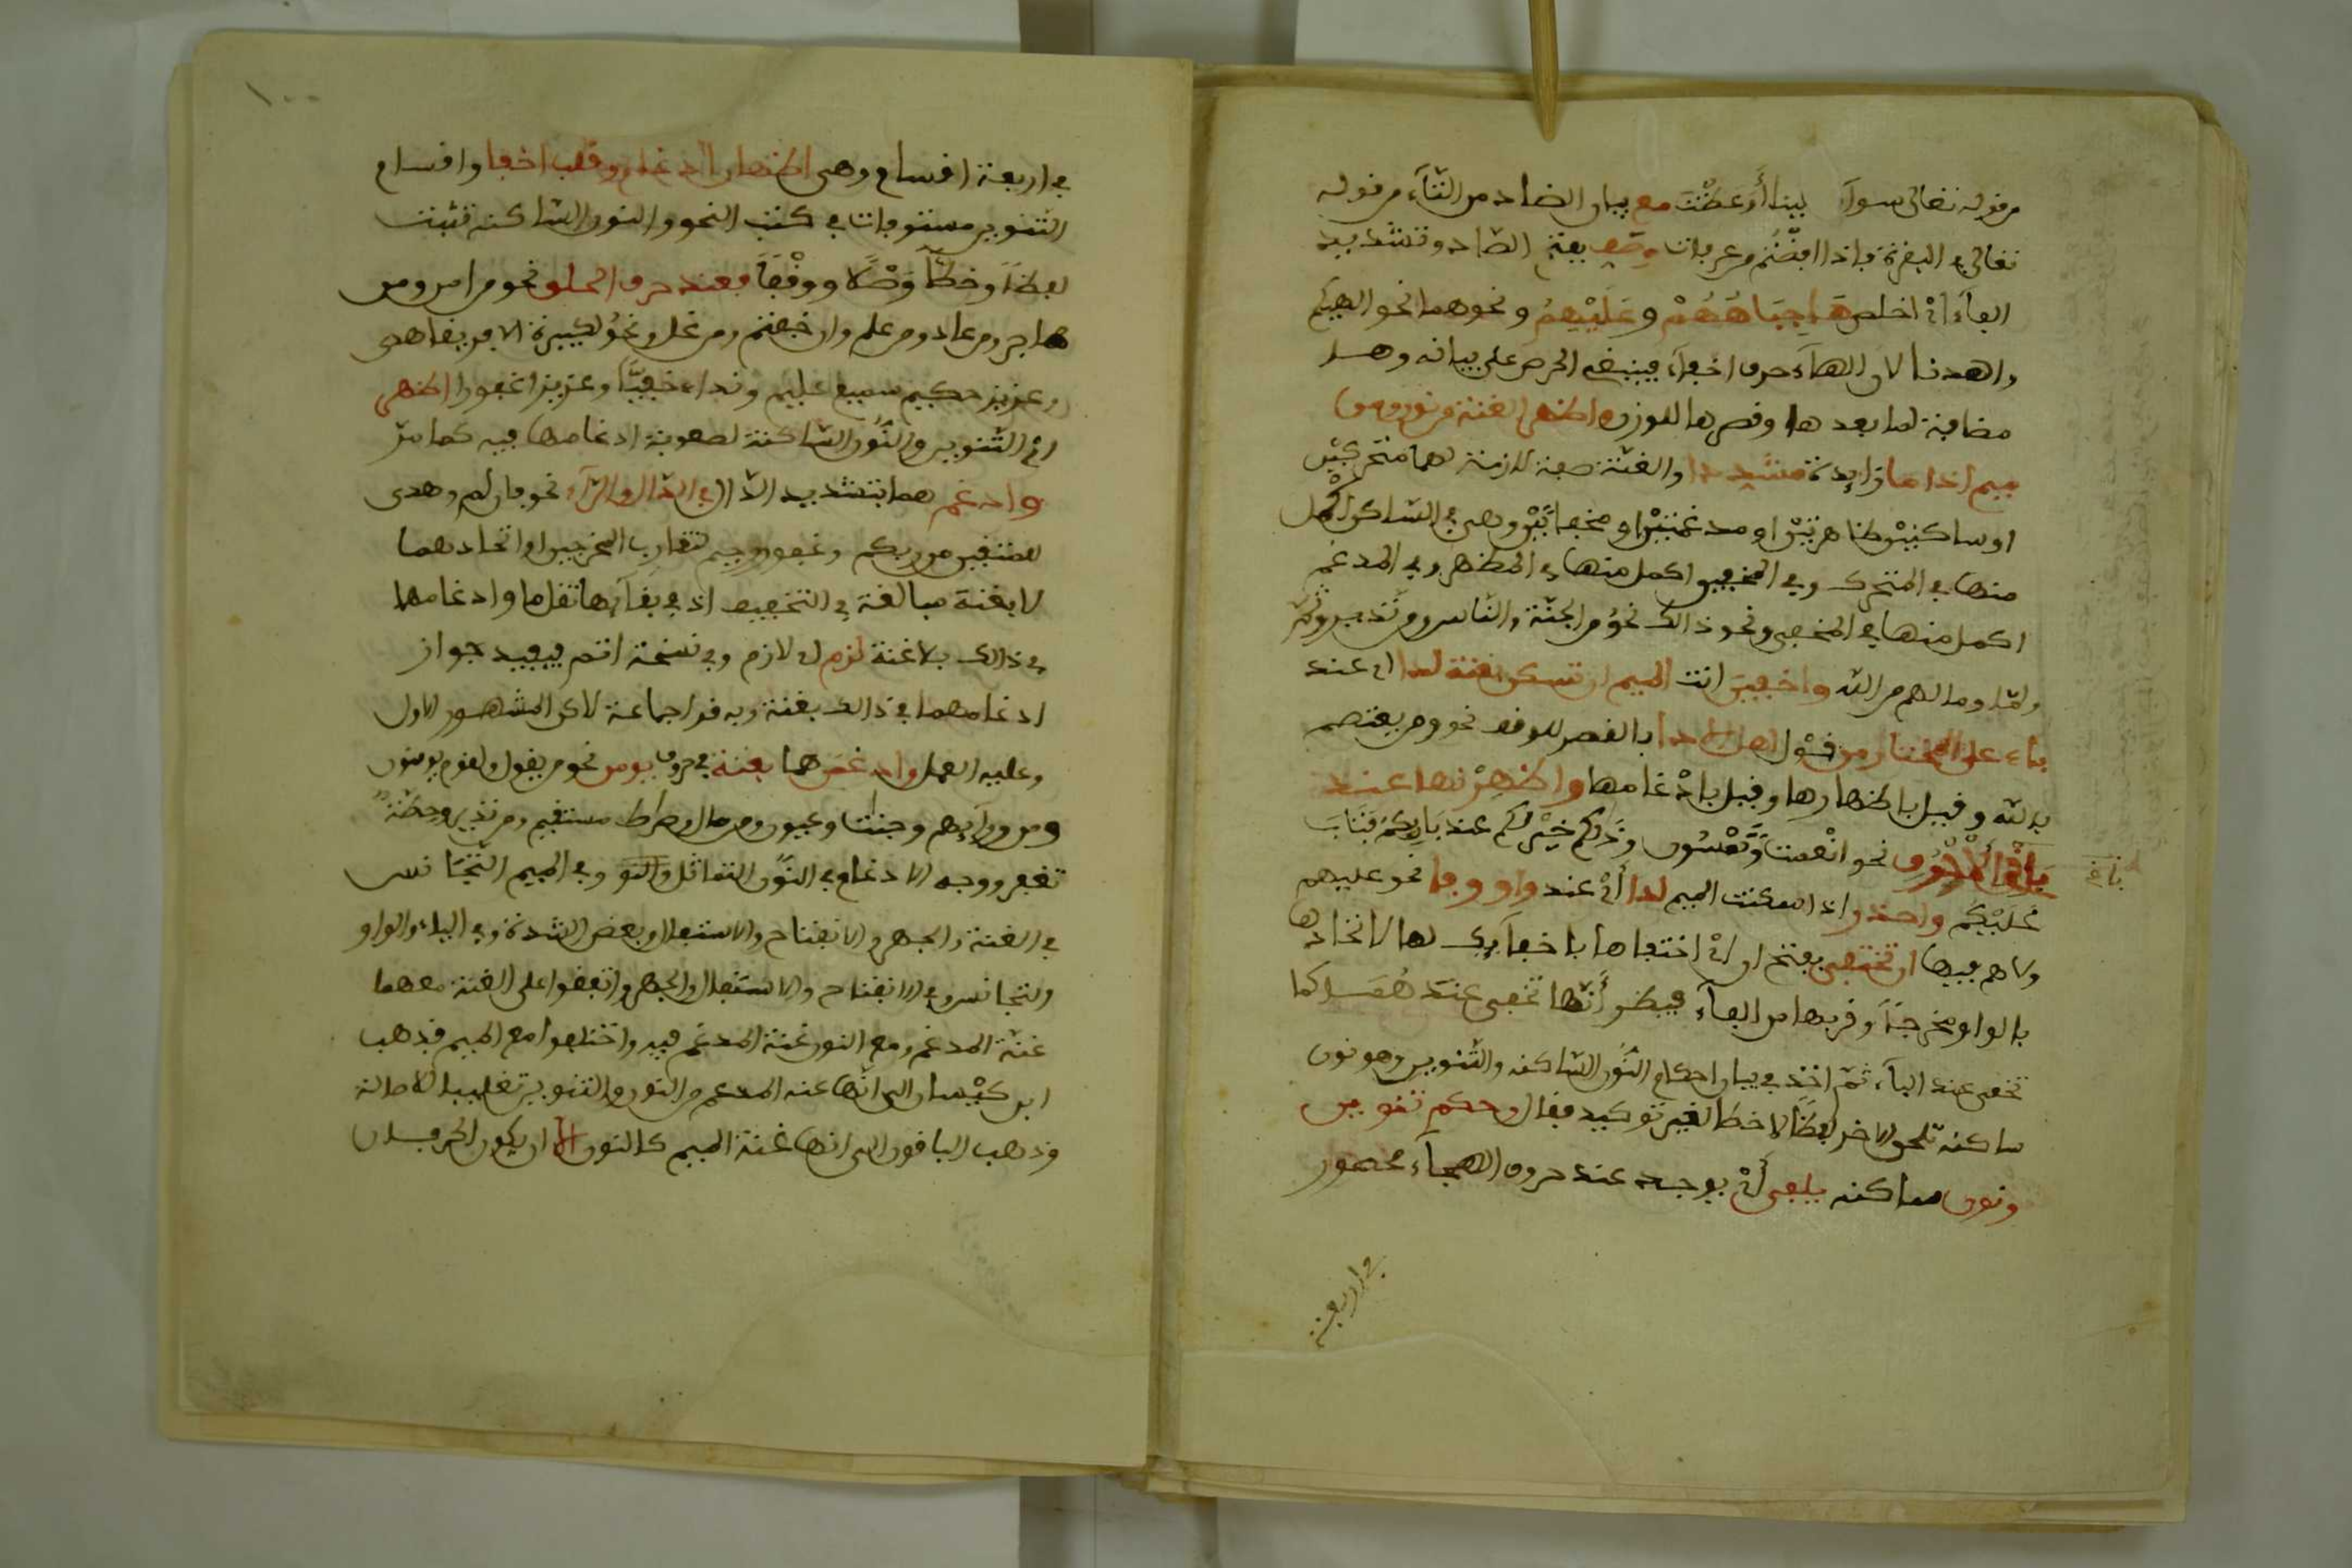 من قوله تعالى سوآء علينا أوعظت مع بيان الضاد من التآء من قوله
تعالى في البقرة فاذا افضتم من عرفات وصف بفتح الصاد وتشديد
الفآء أي اخلص ها جباههم و عليهم ونحوهما نحو الهيكم
واهدنا لان الهآء حرف اخفآء فينبغي الحرص على بيانه وهسا
مضافة لما بعدها وقصرها للوزن واظهر الغنة من نون ومن
ميم اذا ما زايدة مشددا والغنة صفة لازمة لهما متحركتين
او ساكنتين ظاهرتين او مدغمتين او مخفاتين وهي في الساكن اكمل
منها في المتحرك وفي المخفى اكمل منها في المظهر وفي المدغم
اكمل منها في المخفى ونحو ذالك نحو من الجنة والناس ومن نذير وثم
ولما وما لهم من الله واخفين انت الميم ان تسكن بغنة لدا اي عند
باء على المختار من قول اهل الادا بالقصر للوقف نحو ومن يعتصم
بالله وفيل باظهارها وفيل بادغامها واظهرنها عند
باقي الاحرف نحو انعمت وتمسون وذلكم خير لكم عند باريكم فتاب
باغ
عليكم واحذر اذا سكنت الميم لدا أي عند واو وفا نحو عليهم
ولا هم فيها ان تختفي بفتح ان أي اختفاها باخفآيك لها لاتحادها
بالواو مخرجا وقربها من الفآء فيظن أنها تخفى عندهما كما
تخفى عند البآء ثم اخذ في بيان احكام النون الساكنة والتنوين وهو نون
ساكنة تلحق الاخر لفظا لا خطا لغير توكيد فقال وحكم تنوين
ونون ساكنه يلفى أي يوجد عند حروف الهجآء محصور
في اربعة
١٠٠
في اربعة اقسام وهي اظهار ادغام وقلب اخفا واقسام
التنوين مستوفات في كتب النحو والنون الساكنة تثبت
لفظا وخطا وصلا ووقفا فعند حرف الحلق نحو من امن ومن
هاجر ومن عاد ومن علم وان خفتم ومن غل ونحو لكبيرة الا فريقا هدى
وعزيز حكيم سميع عليم ونداء خفيا وعزيزا غفورا اظهر
اي التنوين والنون الساكنة لصعوبة ادغامها فيه كما مر
وادغم هما بتشديد الدال في اللام والرآء نحو فان لم وهدى
للمتقين من ربكم وغفور رحيم لتقارب المخرجين او اتحادهما
لا بغنة مبالغة في التخفيف اذ في بقآيها ثقل ما وادغامهما
في ذالك بلا غنة لزم اي لازم وفي نسخة اتم فيفيد جواز
ادغامهما في ذالك بغنة وبه قرا جماعة لاكن المشهور الاول
وعليه العمل وادغمن هما بغنة في حروف يومن نحو من يقول ولقوم يومنون
ومن ورآيهم وجنت وعيون ومن مال وصراط مستقيم ومن نذير وحطة
نغفر ووجه الادغام في النون التماثل والنو وفي الميم التجانس
في الغنة والجهر والانفتاح والاستفال وبعض الشدة وفي الياء والواو
والتجانس في الانفتاح والاستفال والجهر واتفقوا على الغنة معهما
غنة المدغم ومع النون غنة المدغم فيه واختلفوا مع الميم فذهب
ابن كيسان الى انها غنه المدغم من النون والتنوين تغليبا للاصالة
وذهب الباقون الى انها غنة الميم كالنون الا ان يكون الحرفان